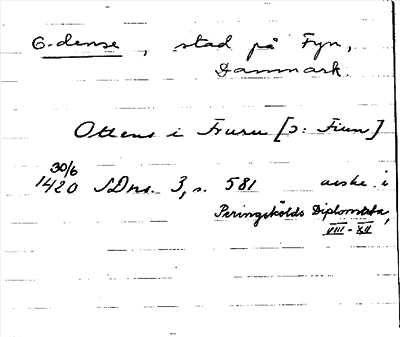 O-dense, stad på Fyn,
Danmark.
Ottens i Furu [ɔ: Fiun]
30/6
1420 SDns. 3, s. 581 avskr. i
Peringskölds Diplomata,
VIII-XII